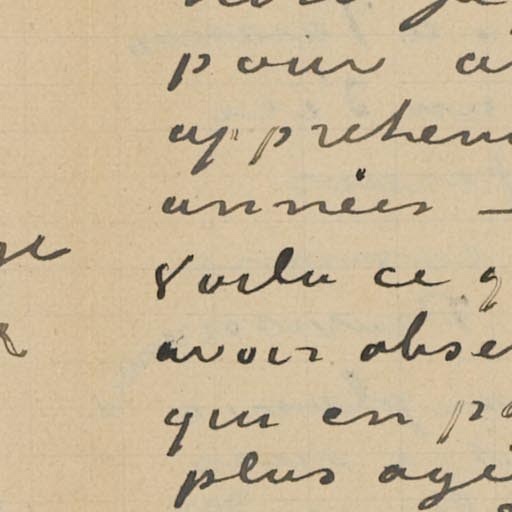 pour a
appréhen
années —
Voilà ce q
avoir obse
qui en pa
plus agé